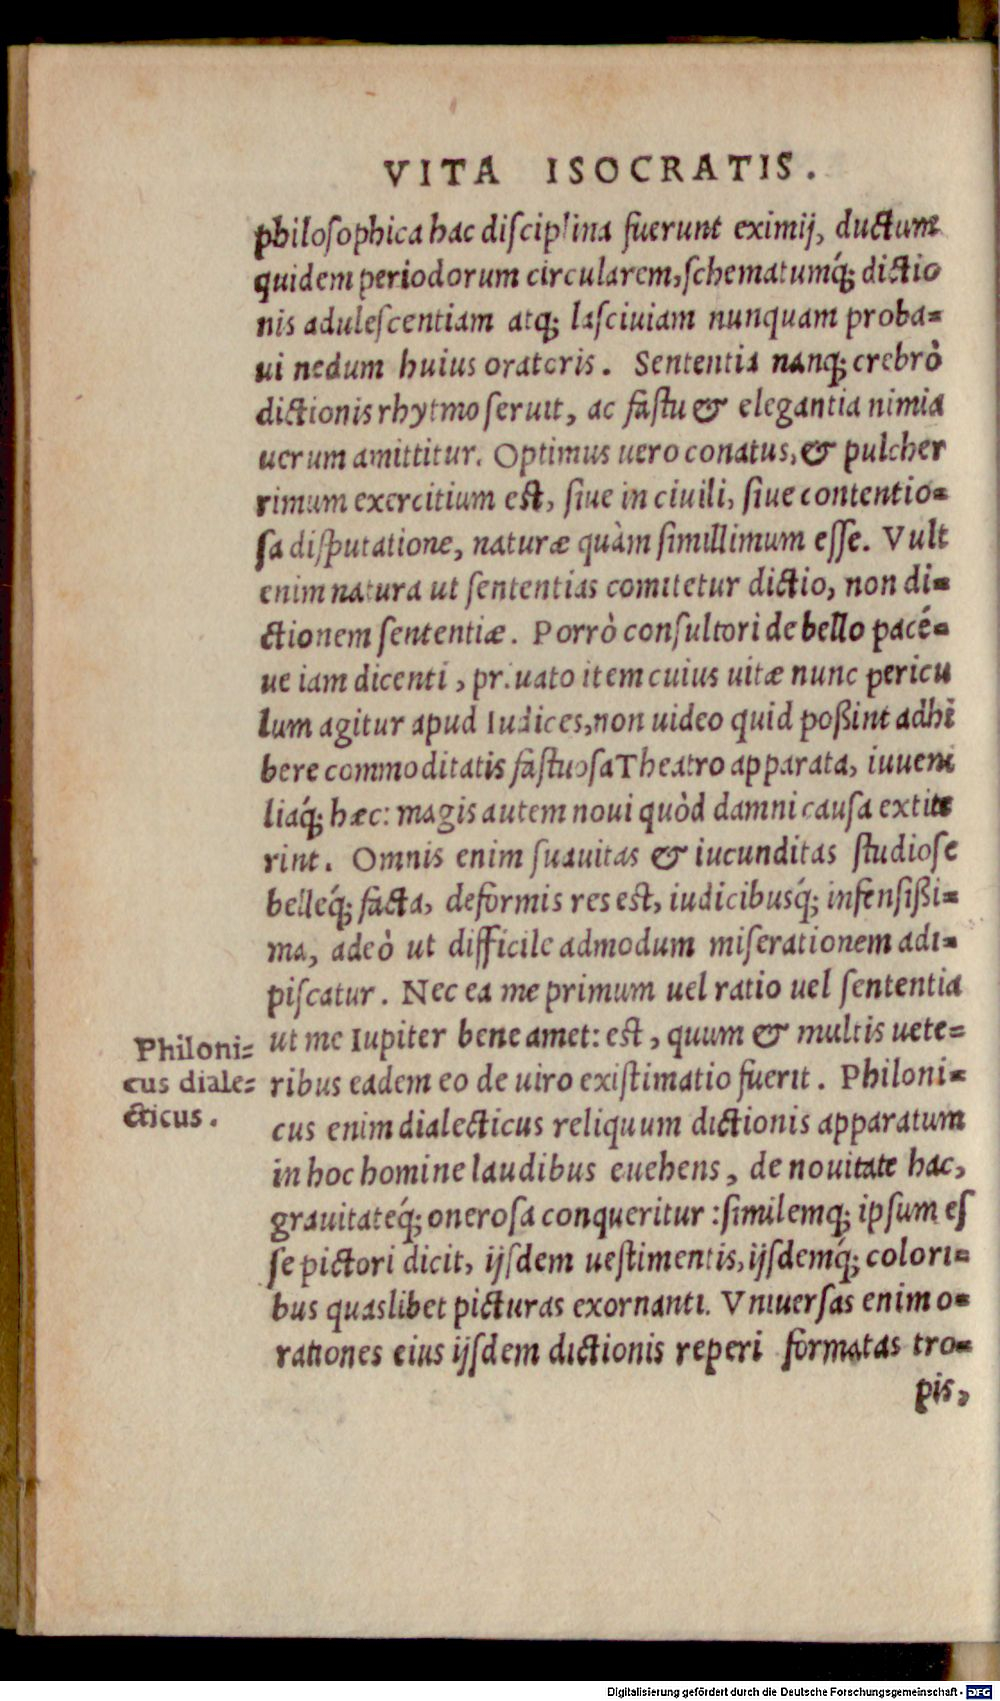 VITA ISOCRATIS.
philosophica hac disciplina fuerunt eximij, ductum
quidem periodorum circularem, schematumq́; dictio
nis adulescentiam atq; lasciuiam nunquam proba=
ui nedum huius oratoris. Sententia nanq; crebrò
dictionis rhytmo seruit, ac fastu & elegantia nimia
uerum amittitur. Optimus uero conatus, & pulcher
rimum exercitium est, siue in ciuili, siue contentio=
sa disputatione, naturæ quàm simillimum esse. Vult
enim natura ut sententias comitetur dictio, non di=
ctionem sententiæ. Porrò consultori de bello pacé=
ue iam dicenti, priuato item cuius uitæ nunc pericu
lum agitur apud Iudices, non uideo quid poßint adhi
bere commoditatis fastuosa Theatro apparata, iuueni
liaq́; hæc: magis autem noui quòd damni causa extite
rint. Omnis enim suauitas & iucunditas studiose
belleq́; facta, deformis res est, iudicibusq́; infensißi=
ma, adeò ut difficile admodum miserationem adi=
piscatur. Nec ea me primum uel ratio uel sententia
ut me Iupiter bene amet: est, quum & multis uete=
ribus eadem eo de uiro existimatio fuerit. Philoni=
cus enim dialecticus reliquum dictionis apparatum
in hoc homine laudibus euehens, de nouitate hac,
grauitateq́; onerosa conqueritur: similemq; ipsum es
se pictori dicit, ijsdem uestimentis, ijsdemq́; colori=
bus quaslibet picturas exornanti. Vniuersas enim o=
rationes eius ijsdem dictionis reperi formatas tro=
pis,
Philoni=
cus diale=
cticus.